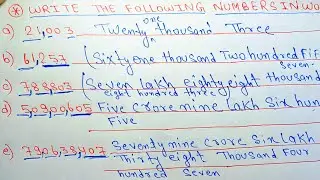 * WRITE THE FOLLOWING NUMBERS IN WO
one
a) 21,003 Twenty thousand Three
b) 61,257 (Sixty one thousand Two hundred Fif
seven-
c) 788803 (Seven lakh Eighty eight thousand
eight hundred three
d) 50900605 Five crore nine lakh Six hun
Five
e) 790638407 Seventy nine crore Six lakh
Thirty eight Thousand Four
hundred seven